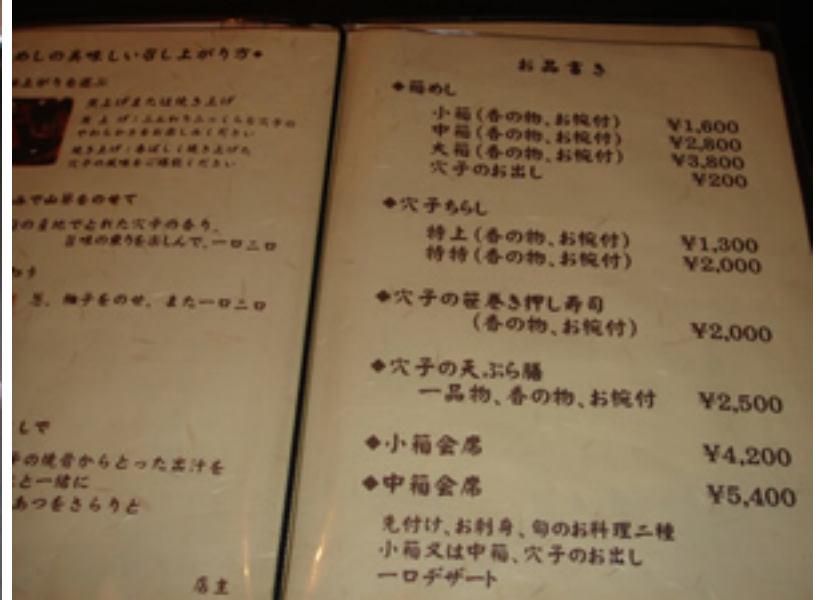 めしの美味しい召し上がり方
上がりを選ぶ
煮上げまたは焼き上げ
煮上げ：ふんわりふっくらな穴子の
やわらかさをお楽しみください
焼き上げ：香ばしく焼き上げた
穴子の風味をご堪能ください
で山芋をのせて
の産地でとれた穴子の香り、
旨味の東りを楽しんで、一口二口
葱、柚子をのせ、また一口二口
しで
の焼骨からとった出汁を
と一緒に
あつをさらりと
店主
お品書き
◆箱めし
小箱(香の物、お椀付) ¥1,600
中箱(香の物、お椀付) ¥2,800
大箱(香の物、お椀付) ¥3,800
穴子のお出し ¥200
◆穴子ちらし
特上(香の物、お椀付) ¥1,300
特特(香の物、お椀付) ¥2,000
◆穴子の笹巻き押し寿司
(香の物、お椀付) ¥2,000
◆穴子の天ぷら膳
一品物、香の物、お椀付 ¥2,500
◆小箱会席 ¥4,200
◆中箱会席 ¥5,400
先付け、お刺身、旬のお料理二種
小箱又は中箱、穴子のお出し
一口デザート